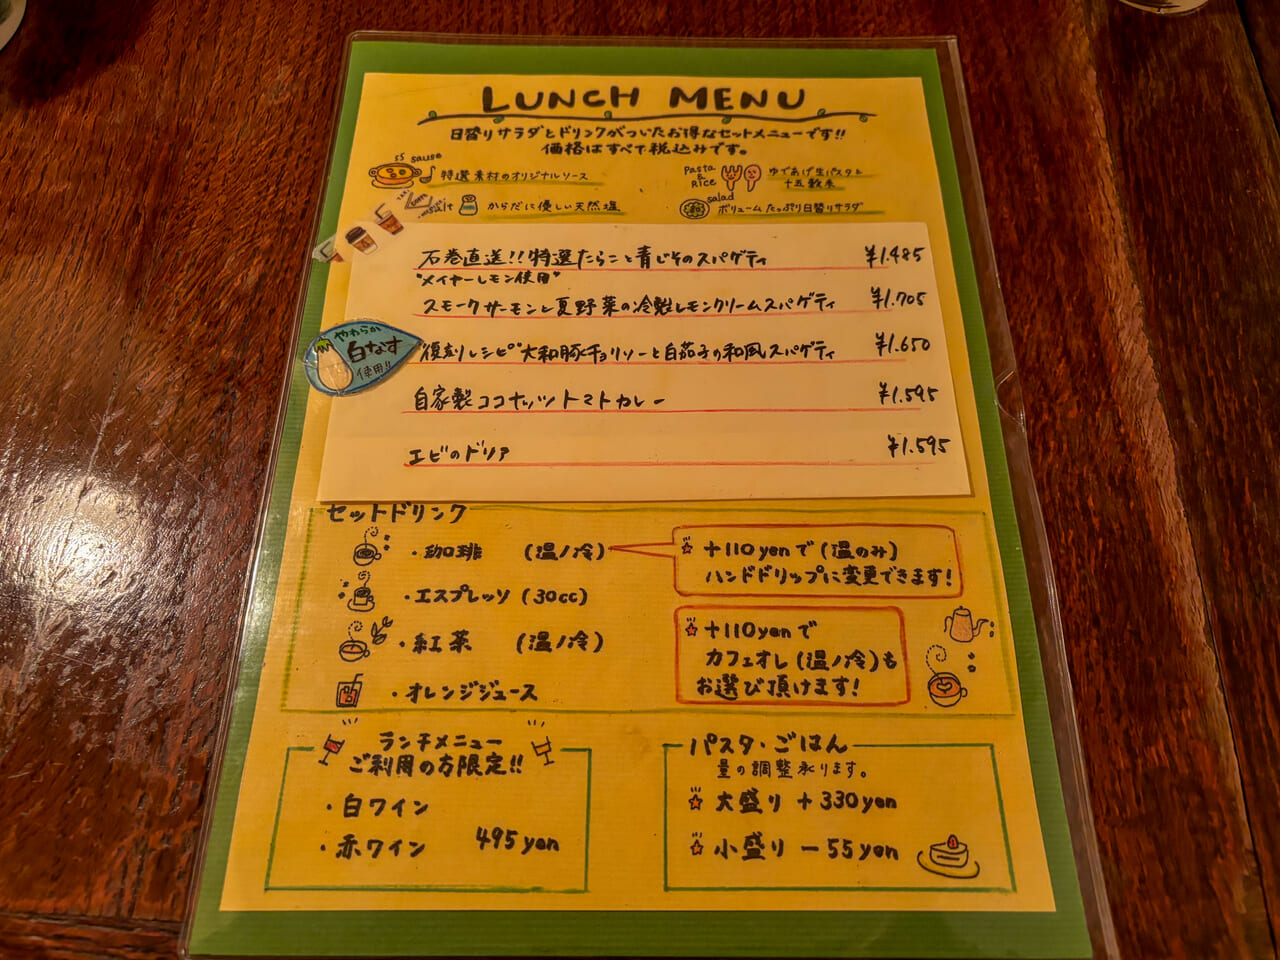 LUNCH MENU
日替りサラダとドリンクがついたお得なセットメニューです!!
価格はすべて税込みです。
sause
特選素材のオリジナルソース
Pasta & Rice
ゆであげ生パスタと
十五穀米
salt
からだに優しい天然塩
salad
ボリュームたっぷり日替りサラダ
石巻直送!!特選たらこと青じそのスパゲティ ¥1.485
"メイヤーレモン使用"
スモークサーモンと夏野菜の冷製レモンクリームスパゲティ ¥1.705
やわらか
白なす
使用!!
"復刻レシピ"大和豚チョリソーと白茄子の和風スパゲティ ¥1.650
自家製ココナッツトマトカレー ¥1.595
エビのドリア ¥1.595
セットドリンク
・珈琲 (温/冷)
☆+110yenで(温のみ)
ハンドドリップに変更できます!
・エスプレッソ(30cc)
・紅茶 (温/冷)
☆+110yenで
カフェオレ(温/冷)も
お選び頂けます!
・オレンジジュース
ランチメニュー
ご利用の方限定!!
・白ワイン
・赤ワイン 495yen
パスタ・ごはん
量の調整承ります。
☆大盛り +330yen
☆小盛り -55yen